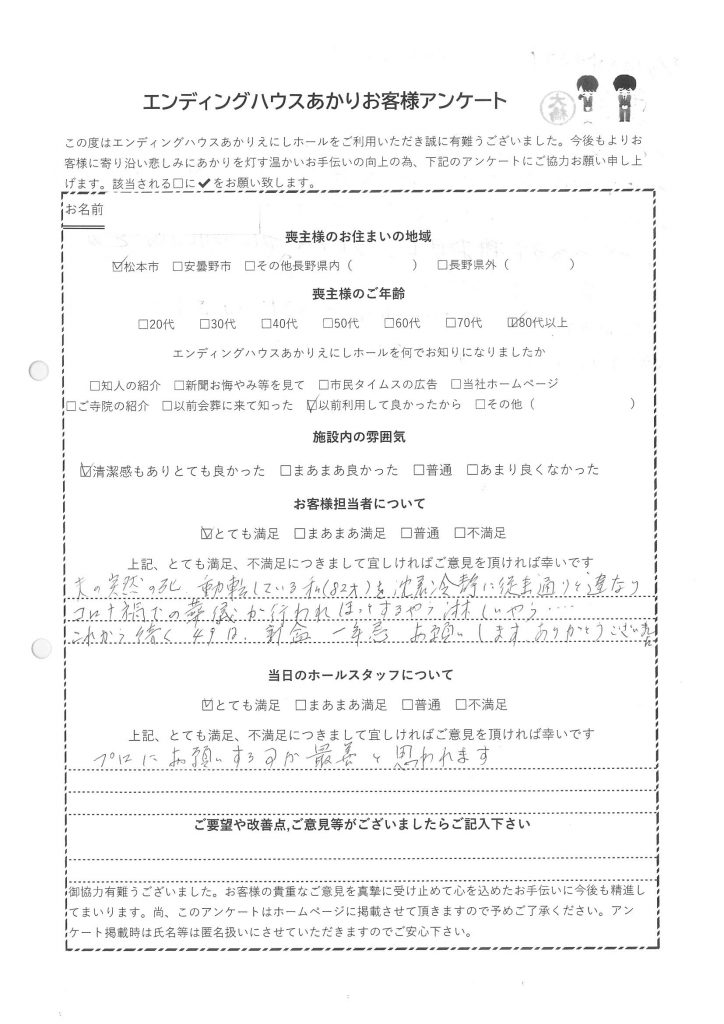 エンディングハウスあかりお客様アンケート
この度はエンディングハウスあかりえにしホールをご利用いただき誠に有難うございました。今後もよりお
客様に寄り沿い悲しみにあかりを灯す温かいお手伝いの向上の為、下記のアンケートにご協力お願い申し上
げます。該当される□に✔をお願い致します。
お名前
喪主様のお住まいの地域
☑松本市 □安曇野市 □その他長野県内（ ） □長野県外（ ）
喪主様のご年齢
□20代 □30代 □40代 □50代 □60代 □70代 ☑80代以上
エンディングハウスあかりえにしホールを何でお知りになりましたか
□知人の紹介 □新聞お悔やみ等を見て □市民タイムスの広告 □当社ホームページ
□ご寺院の紹介 □以前会葬に来て知った ☑以前利用して良かったから □その他（ ）
施設内の雰囲気
☑清潔感もありとても良かった □まあまあ良かった □普通 □あまり良くなかった
お客様担当者について
☑とても満足 □まあまあ満足 □普通 □不満足
上記、とても満足、不満足につきまして宜しければご意見を頂ければ幸いです
夫の突然の死 動転している私(82才)を 沈着冷静に従来通りと違なり
コロナ禍での葬儀が行われほっとするやら淋しいやら…
これから続く 49日、新盆 一年忌 お願いします ありがとうございました
当日のホールスタッフについて
☑とても満足 □まあまあ満足 □普通 □不満足
上記、とても満足、不満足につきまして宜しければご意見を頂ければ幸いです
プロにお願いするのが最善と思われます
ご要望や改善点,ご意見等がございましたらご記入下さい
御協力有難うございました。お客様の貴重なご意見を真摯に受け止めて心を込めたお手伝いに今後も精進し
てまいります。尚、このアンケートはホームページに掲載させて頂きますので予めご了承ください。アン
ケート掲載時は氏名等は匿名扱いにさせていただきますのでご安心下さい。